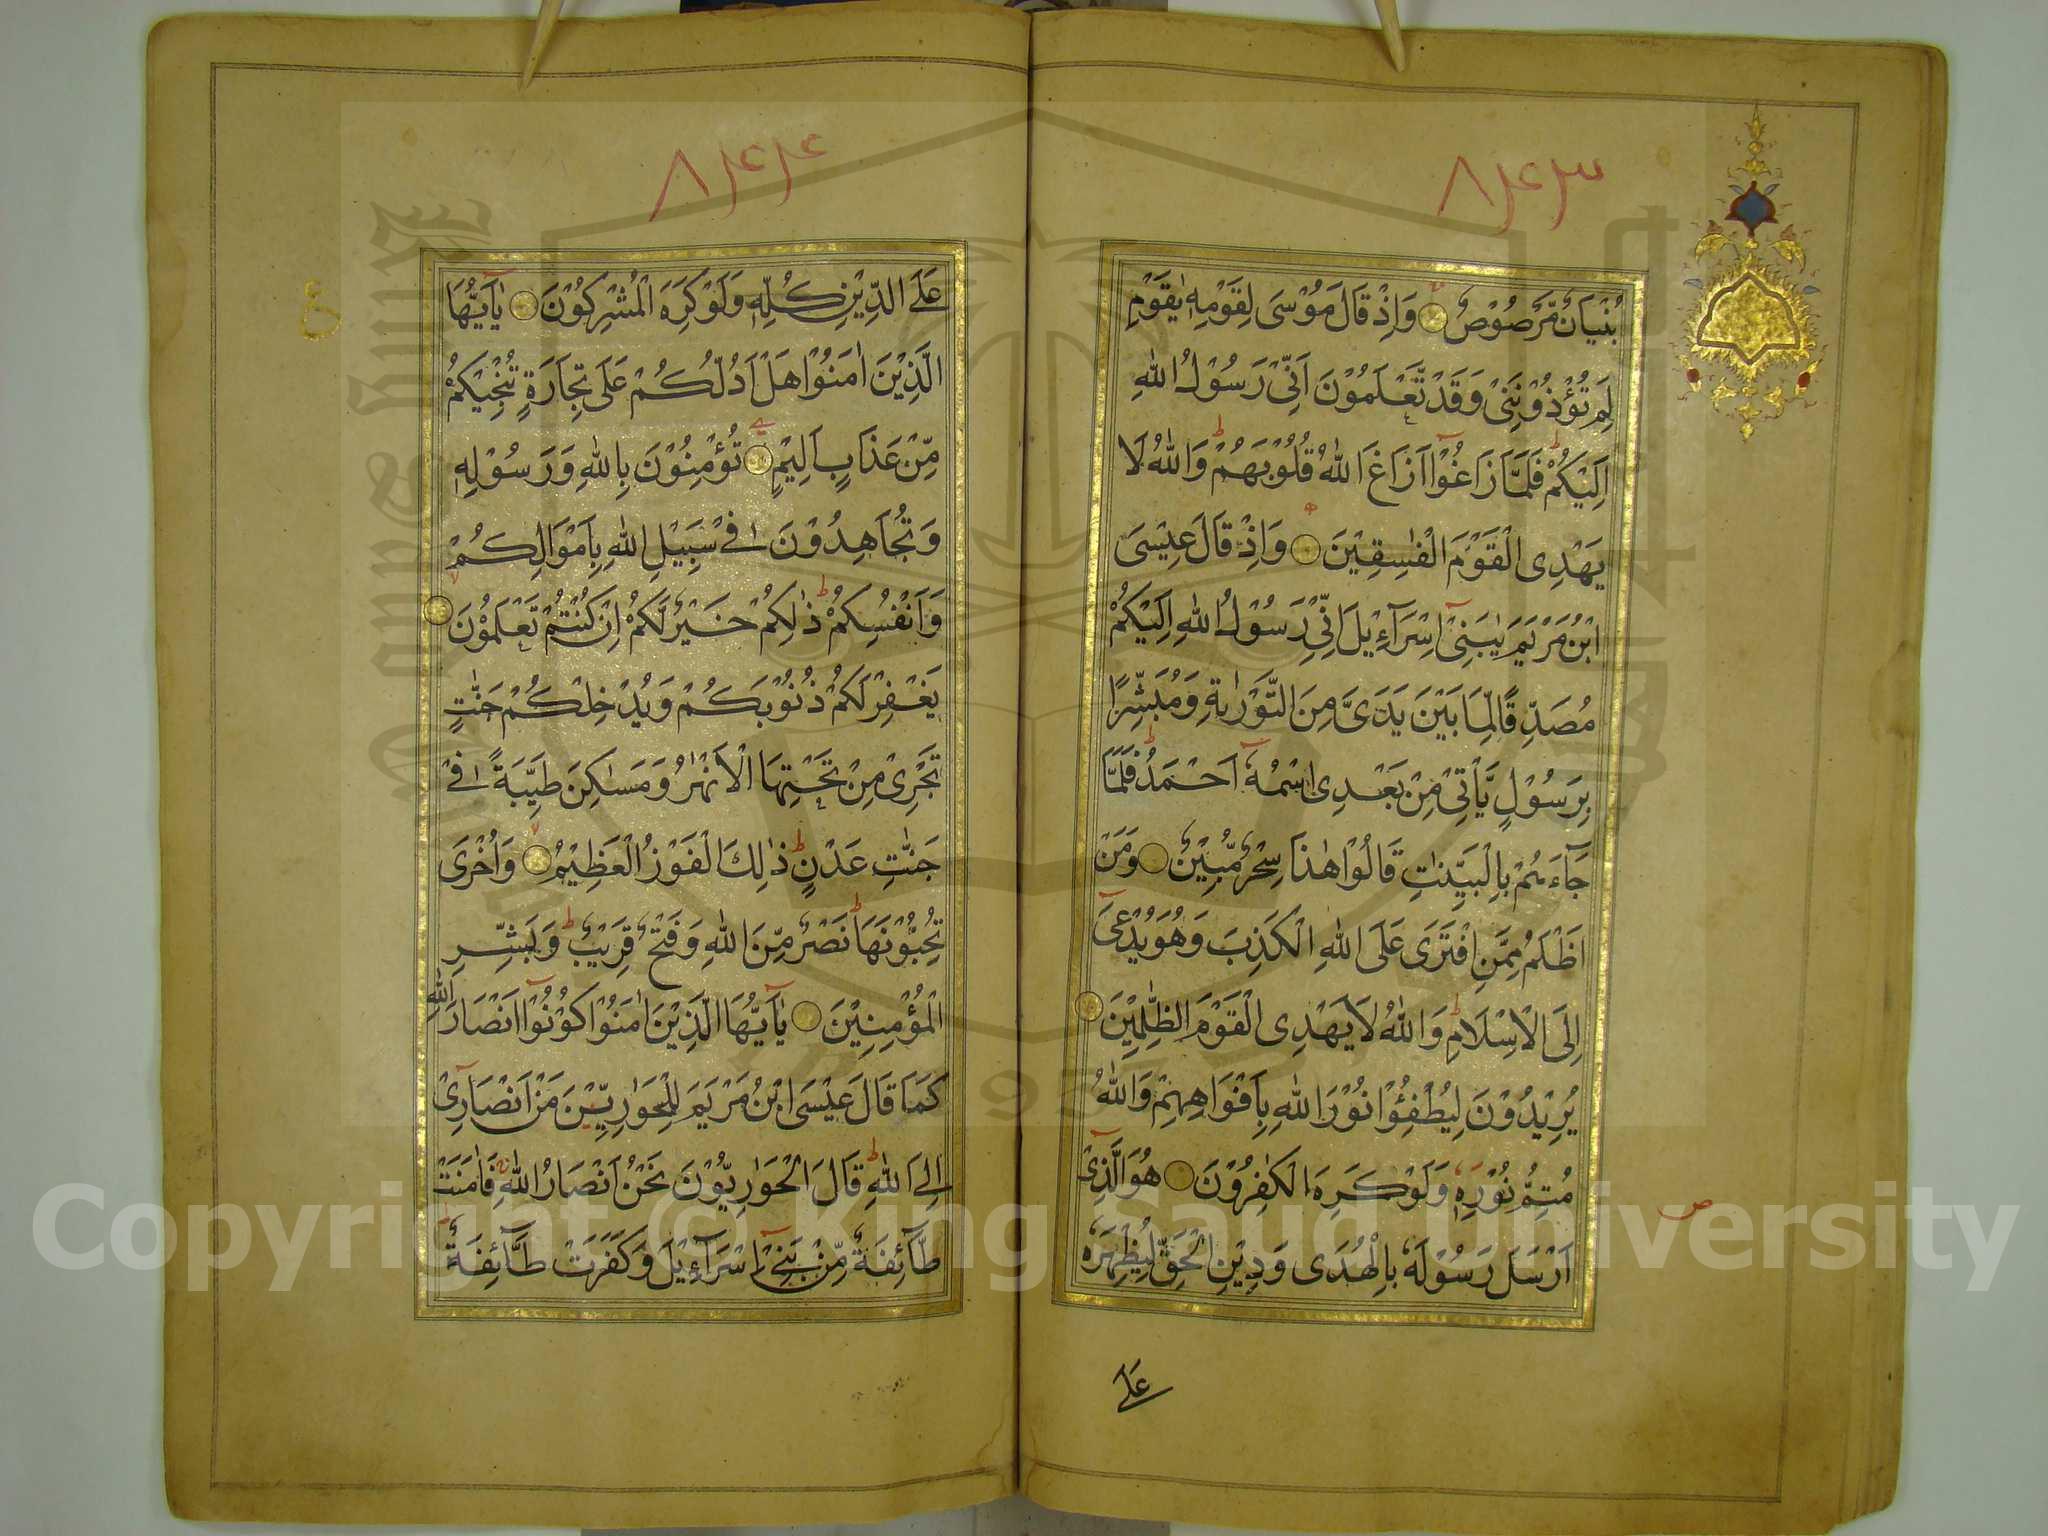 ٨٤٣
بُنْيَانٌ مَّرْصُوْصٌ وَاِذْ قَالَ مُوْسَى لِقَوْمِهٖ يٰقَوْمِ
لِمَ تُؤْذُوْنَنِىْ وَقَدْ تَّعْلَمُوْنَ اَنِّىْ رَسُوْلُ اللّٰهِ
اِلَيْكُمْ فَلَمَّا زَاغُوْٓا اَزَاغَ اللّٰهُ قُلُوْبَهُمْ وَاللّٰهُ لَا
يَهْدِى الْقَوْمَ الْفٰسِقِيْنَ وَاِذْ قَالَ عِيْسَى
ابْنُ مَرْيَمَ يٰبَنِىْٓ اِسْرَآءِيْلَ اِنِّىْ رَسُوْلُ اللّٰهِ اِلَيْكُمْ
مُصَدِّقًا لِّمَا بَيْنَ يَدَىَّ مِنَ التَّوْرٰىةِ وَمُبَشِّرًا
بِرَسُوْلٍ يَّاْتِىْ مِنْ بَعْدِى اسْمُهٗٓ اَحْمَدُ فَلَمَّا
جَآءَهُمْ بِالْبَيِّنٰتِ قَالُوْا هٰذَا سِحْرٌ مُّبِيْنٌ وَمَنْ
اَظْلَمُ مِمَّنِ افْتَرَى عَلَى اللّٰهِ الْكَذِبَ وَهُوَ يُدْعَىٓ
اِلَى الْاِسْلَامِ وَاللّٰهُ لَا يَهْدِى الْقَوْمَ الظّٰلِمِيْنَ
يُرِيْدُوْنَ لِيُطْفِئُوْا نُوْرَ اللّٰهِ بِاَفْوَاهِهِمْ وَاللّٰهُ
مُتِمُّ نُوْرِهٖ وَلَوْ كَرِهَ الْكٰفِرُوْنَ هُوَ الَّذِىْٓ
اَرْسَلَ رَسُوْلَهٗ بِالْهُدَى وَدِيْنِ الْحَقِّ لِيُظْهِرَهٗ
عَلَى
ص
٨٤٤
ع
عَلَى الدِّيْنِ كُلِّهٖ وَلَوْ كَرِهَ الْمُشْرِكُوْنَ يٰٓاَيُّهَا
الَّذِيْنَ اٰمَنُوْا هَلْ اَدُلُّكُمْ عَلَى تِجَارَةٍ تُنْجِيْكُمْ
مِّنْ عَذَابٍ اَلِيْمٍ تُؤْمِنُوْنَ بِاللّٰهِ وَرَسُوْلِهٖ
وَتُجَاهِدُوْنَ فِىْ سَبِيْلِ اللّٰهِ بِاَمْوَالِكُمْ
وَاَنْفُسِكُمْ ذٰلِكُمْ خَيْرٌ لَّكُمْ اِنْ كُنْتُمْ تَعْلَمُوْنَ
يَغْفِرْ لَكُمْ ذُنُوْبَكُمْ وَيُدْخِلْكُمْ جَنّٰتٍ
تَجْرِىْ مِنْ تَحْتِهَا الْاَنْهٰرُ وَمَسٰكِنَ طَيِّبَةً فِىْ
جَنّٰتِ عَدْنٍ ذٰلِكَ الْفَوْزُ الْعَظِيْمُ وَاُخْرَى
تُحِبُّوْنَهَا نَصْرٌ مِّنَ اللّٰهِ وَفَتْحٌ قَرِيْبٌ وَبَشِّرِ
الْمُؤْمِنِيْنَ يٰٓاَيُّهَا الَّذِيْنَ اٰمَنُوْا كُوْنُوْٓا اَنْصَارَ اللّٰهِ
كَمَا قَالَ عِيْسَى ابْنُ مَرْيَمَ لِلْحَوٰرِيِّيْنَ مَنْ اَنْصَارِىْٓ
اِلَى اللّٰهِ قَالَ الْحَوٰرِيُّوْنَ نَحْنُ اَنْصَارُ اللّٰهِ فَاٰمَنَتْ
طَّآئِفَةٌ مِّنْ بَنِىْٓ اِسْرَآءِيْلَ وَكَفَرَتْ طَّآئِفَةٌ
Copyright © King Saud University